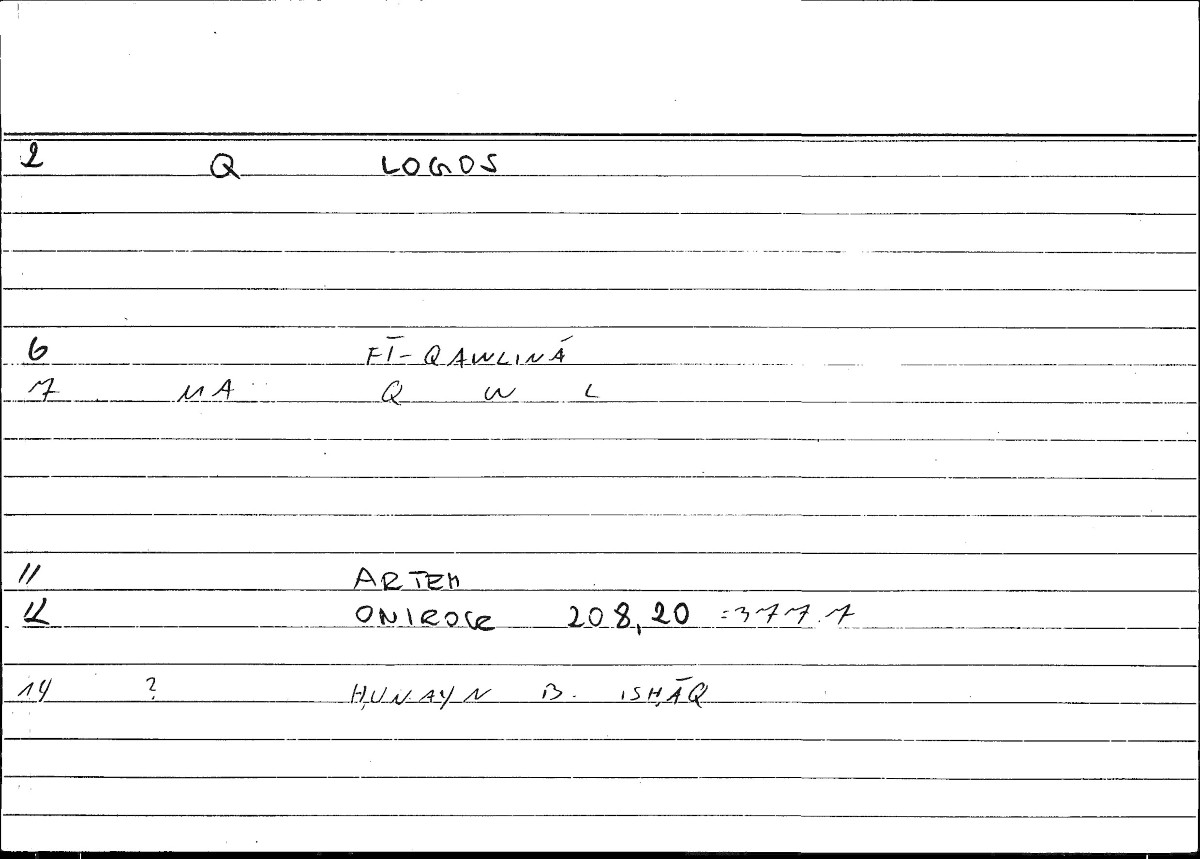 2 Q LOGOS
6 FĪ-QAWLINĀ
7 MA Q W L
11 ARTEM
12 ONIROCR 208,20 =377.7
14 ? ḤUNAYN B. ISḤĀQ